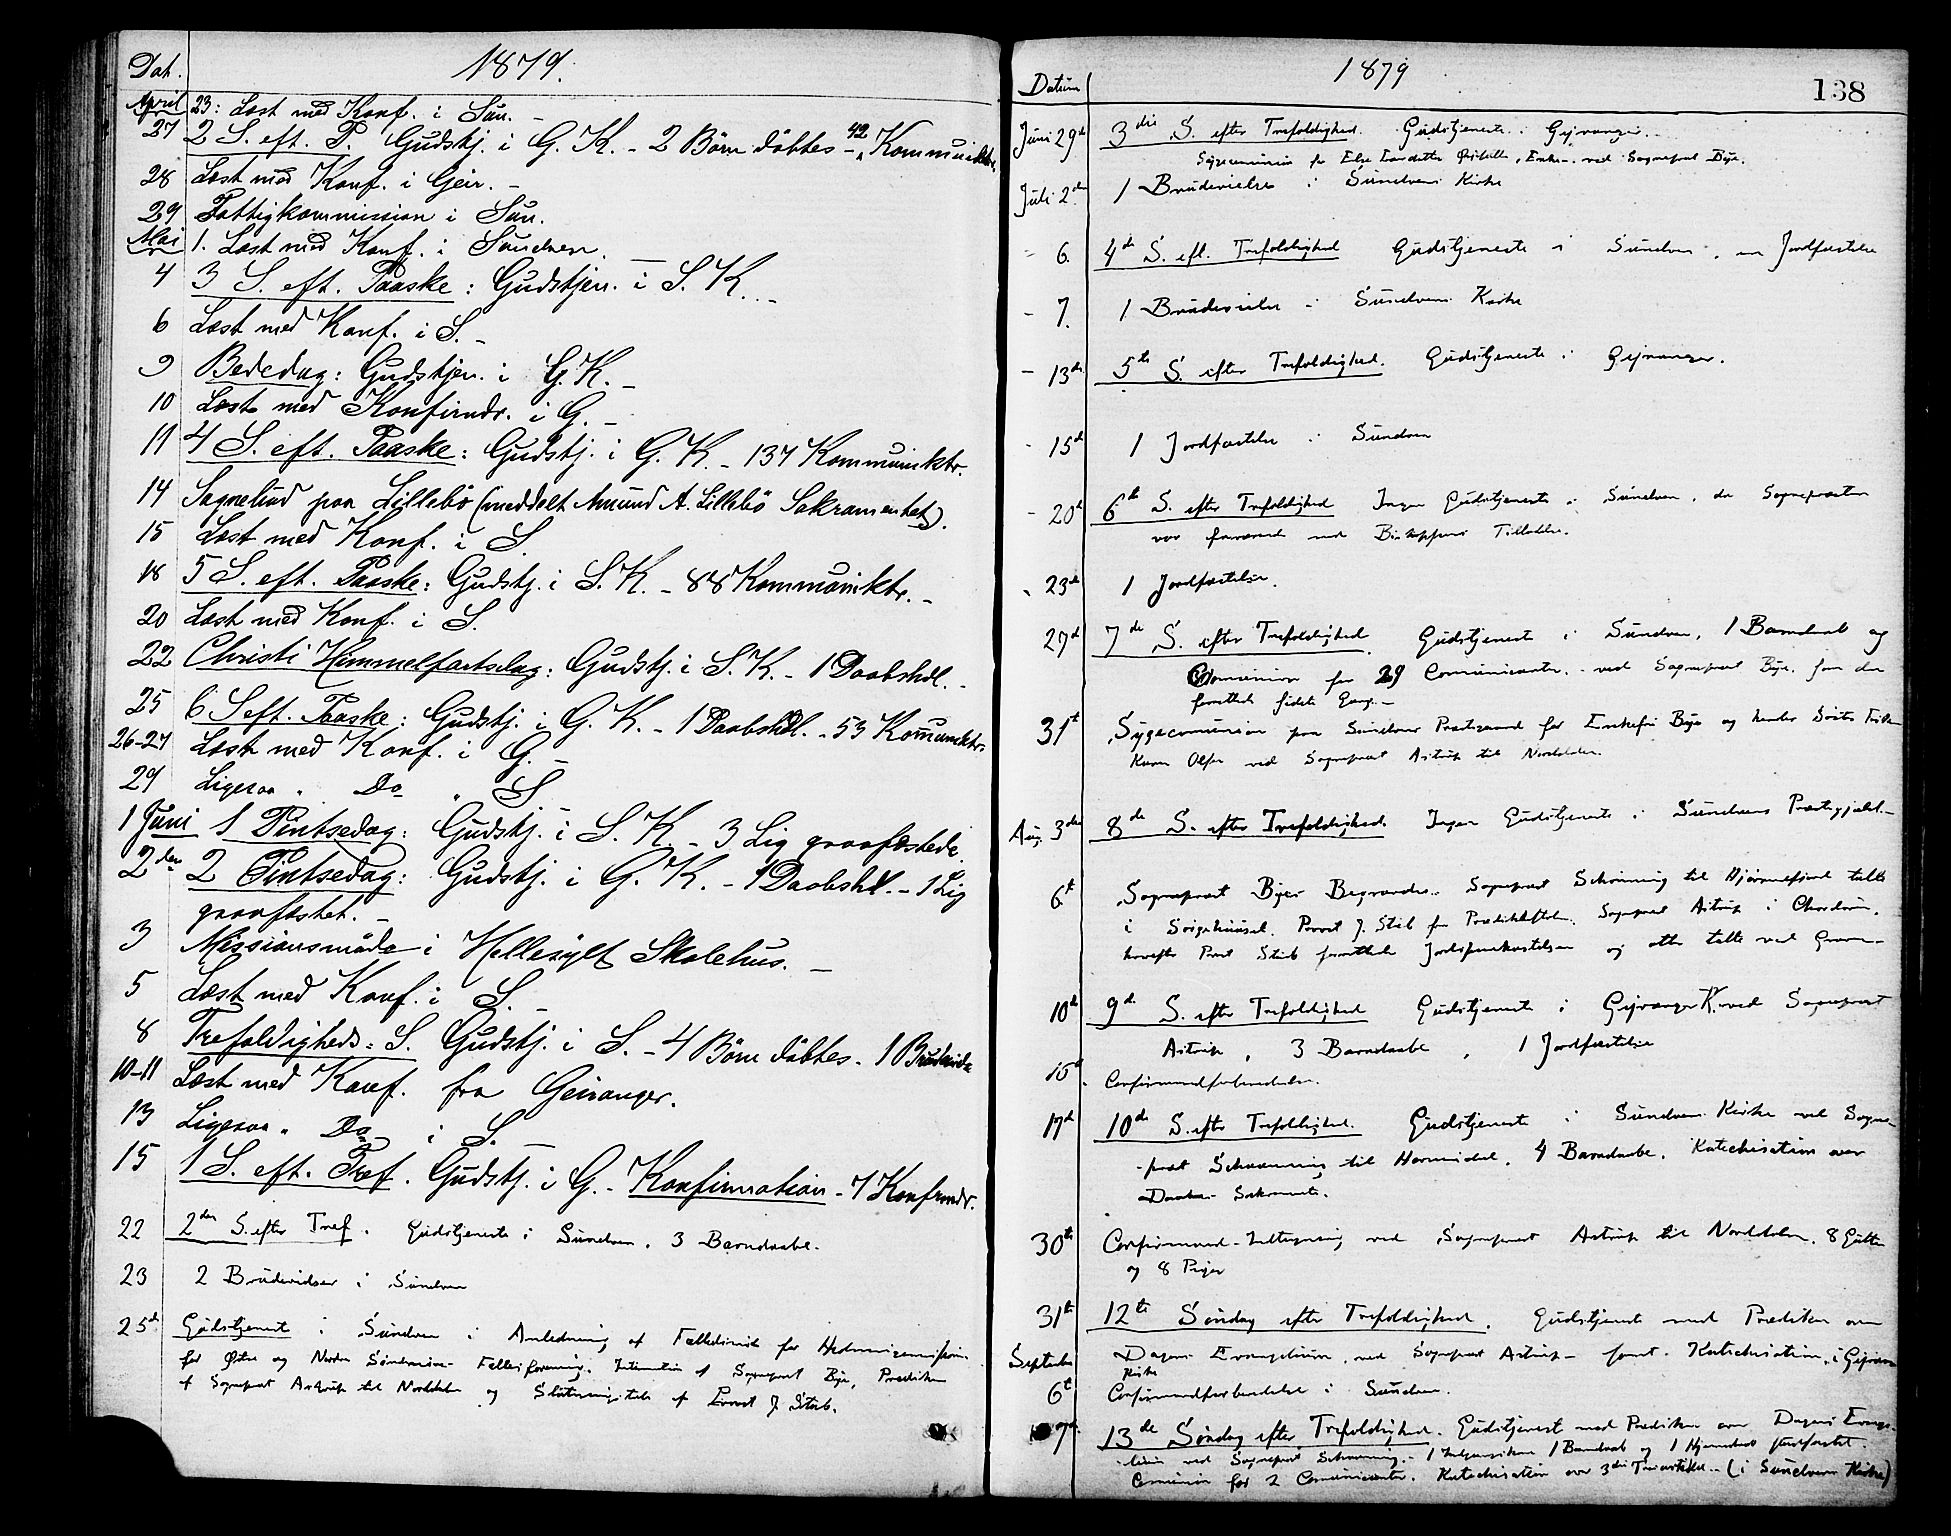 Dat. 1879.
April 23: Læst med Konf. i Sun. –
27 2 S. eft. P. Gudstj. i G. K. – 2 Børn døbtes – 42 Kommuniktr.
28 Læst med Konf. i Geir. –
29 Fattigkommission i Sun.
Mai 1. Læst med Konf. i Sunelven.
4 3 S. eft. Paaske: Gudstjen. i S. K. –
6 Læst med Konf. i S. –
9 Bededag: Gudstjen. i G. K. –
10 Læst med Konfirmdr. i G. –
11 4 S. eft. Paaske: Gudstj. i G. K. – 137 Kommuniktr.
14 Sognebud paa Lillebö (meddelt Amund A. Lillebö Sakramentet).
15 Læst med Konf. i S.
18 5 S. eft. Paaske: Gudstj. i S. K. – 88 Kommuniktr. –
20 Læst med Konf. i S.
22 Christi Himmelfartsdag: Gudstj. i S. K. – 1 Daabshdl. –
25 6 S eft. Paaske: Gudstj. i G. K. – 1 Daabshdl. – 53 Komuniktr.
26-27 Læst med Konf. i G. –
29 Ligesaa " Do " S
1 Juni 1 Pintsedag: Gudstj. i S. K. – 3 Lig graafæstede.
2den 2 Pintsedag: Gudstj. i G. K. – 1 Daabshdl. – 1 Lig
graafæstet. –
3 Missionsmøde i Hellesylt Skolehus. –
5 Læst med Konf. i S. –
8 Trefoldigheds: S. Gudstj. i S. – 4 Børn døbtes – 1 Brudevie
10-11 Læst med Konf. fra Geiranger.
13 Ligesaa " Do i S. –
15 1 S. eft. Tref. Gudstj. i G. – Konfirmation – 7 Konfrmdr.
22 2den S. efter Tref. Gudstjeneste i Sunelven. 3 Barndaabe.
23 2 Brudevielser i Sunelven
25de Gudstjenest i Sunelven i Anledning af for Hedningemission
for og Nordre Søndmøre Fællesforening. af Sognepræst Bye, Prædiken
af Sognepræst Astrup til Norddalen og Slutningstale af Provst J. Stub.
Datum 1879 138
Juni 29de 3die S. efter Trefoldighed. Gudstjeneste i Gejranger.
Sygecommunion for Else Enke – ved Sognepræst Bye.
Juli 2den 1 Brudevielse i Sunelvens Kirke
– 6. 4de S. eft. Trefoldighed Gudstjeneste i Sunelven, en Jordfæstelse
– 7. 1 Brudevielse i Sunelvens Kirke
– 13de 5te S. efter Trefoldighed. Gudstjeneste i Gejranger.
– 15de 1 Jordfæstelse i Sunelven
– 20de 6te S. efter Trefoldighed Ingen Gudstjeneste i Sunelven, da Sognepræsten
var fraværende med Biskoppens Tilladelse.
23de 1 Jordfæstelse.
27de 7de S. efter Trefoldighed. Gudstjeneste i Sunelven, 1 Barndaab og
Communion for 29 Comunicanter – ved Sognepræst Bye, som da
forrettede sidste Gang. –
31te Sygecomunion paa Sunelvens Præstegaard for Enkefru Bye og hendes Søster
Karen Olsen ved Sognepræst Astrup til Norddalen.
Aug. 3die 8de S. efter Trefoldighed. Ingen Gudstjeneste i Sunelvens Præstegjæld. –
6te Sognepræst Byes Begravelse. Sognepræst Schrøning til Hjørundfjord talte
i Sørgehuset. Provst J. Stub fra Prædikestolen. Sognepræst Astrup i Chordøren.
hvorefter Provst Stub forrettede Jordspaakastelsen og talte ved Graven –
10de 9de S. efter Trefoldighed Gudstjeneste i Gejranger K. ved Sognepræst
Astrup, 3 Barndaabe, 1 Jordfæstelse
Confirmandforberedelse.
17de 10de S. efter Trefoldighed. Gudstjeneste i Sunelvens Kirke ved Sogne-
præst til 4 Barndaabe. Katechisation over
Daabens Sakramente.
30te Confirmand-Indtegning ved Sognepræst Astrup til Norddalen. 8 Gutter
og 8 Piger
31te 12te Søndag efter Trefoldighed. Gudstjeneste med Prædiken over
Dagens Evangelium, ved Sognepræst Astrup – samt Katechisation, i Gejranger
Kirke
September 6te Confirmandforberedelse i Sunelven.
7de 13de Søndag efter Trefoldighed. Gudstjenest med Prædiken over Dagens Evange-
lium ved Sognepræst 1 1 Barndaab og 1 Hjemmedøbt
Comunion for 2 Comunicanter. Katechisation over 3die Trosartikel – (i Sunelvens Kirke)